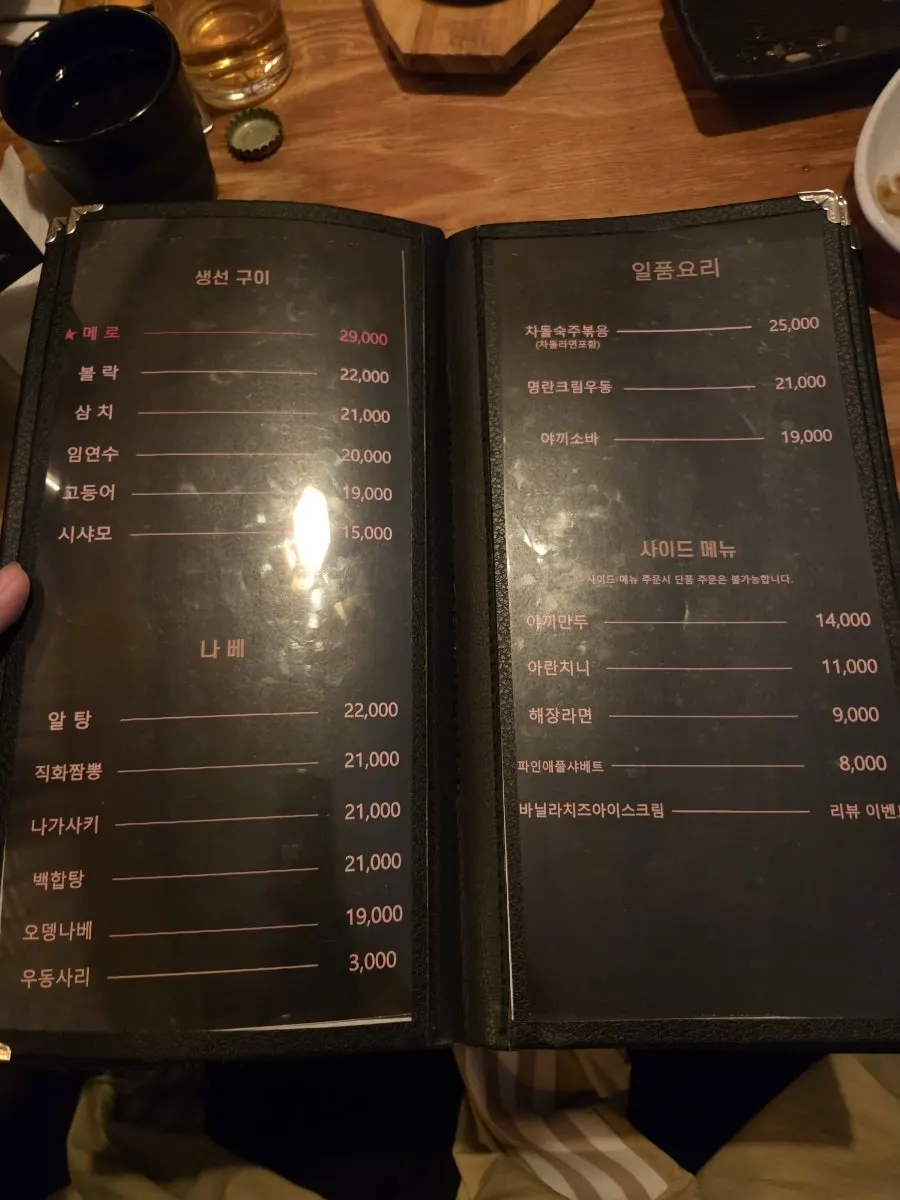 생선 구이
★ 메 로 29,000
볼 락 22,000
삼 치 21,000
임연수 20,000
고등어 19,000
시샤모 15,000
나 베
알 탕 22,000
직화짬뽕 21,000
나가사키 21,000
백합탕 21,000
오뎅나베 19,000
우동사리 3,000
일품요리
차돌숙주볶음 25,000
(차돌라면포함)
명란크림우동 21,000
야끼소바 19,000
사이드 메뉴
사이드 메뉴 주문시 단품 주문은 불가능합니다.
야끼만두 14,000
아란치니 11,000
해장라면 9,000
파인애플샤베트 8,000
바닐라치즈아이스크림 리뷰 이벤